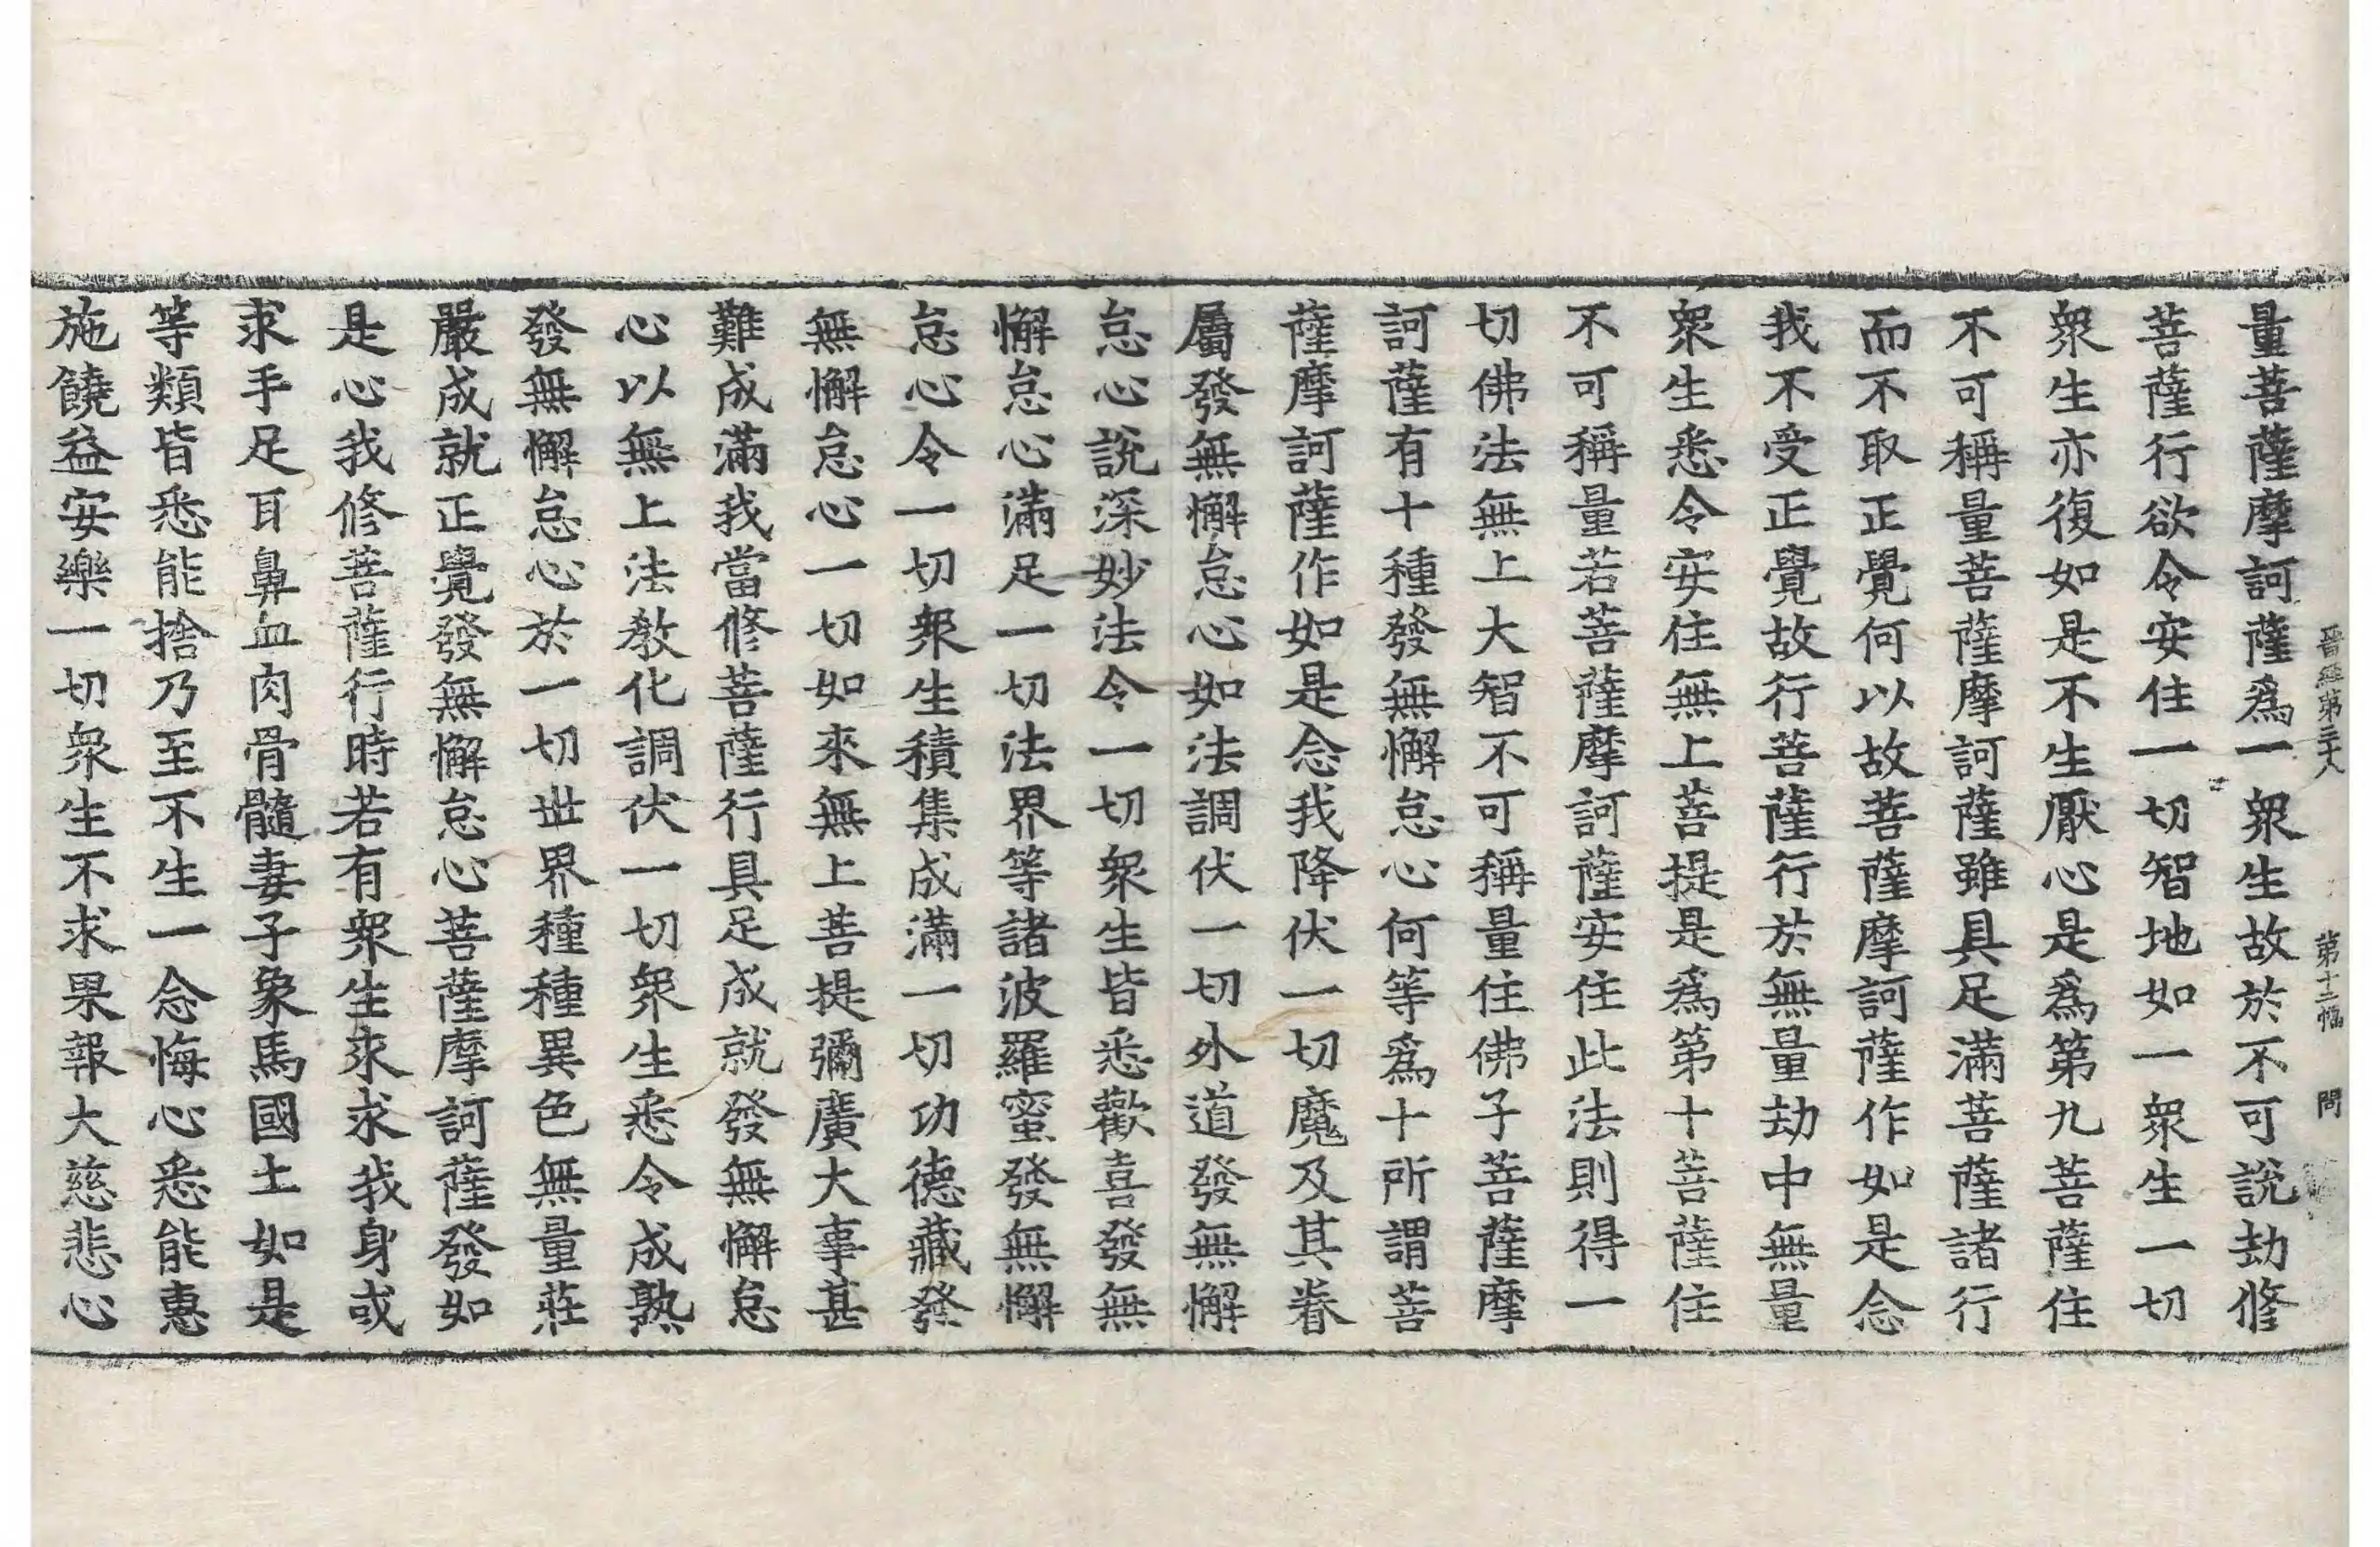 晉經第三十八　第十二幅　問
量菩薩摩訶薩爲一衆生故於不可說劫修
菩薩行欲令安住一切智地如一衆生一切
衆生亦復如是不生厭心是爲第九菩薩住
不可稱量菩薩摩訶薩雖具足滿菩薩諸行
而不取正覺何以故菩薩摩訶薩作如是念
我不受正覺故行菩薩行於無量劫中無量
衆生悉令安住無上菩提是爲第十菩薩住
不可稱量若菩薩摩訶薩安住此法則得一
切佛法無上大智不可稱量住佛子菩薩摩
訶薩有十種發無懈怠心何等爲十所謂菩
薩摩訶薩作如是念我降伏一切魔及其眷
屬發無懈怠心如法調伏一切外道發無懈
怠心說深妙法令一切衆生皆悉歡喜發無
懈怠心滿足一切法界等諸波羅蜜發無懈
怠心令一切衆生積集成滿一切功德藏發
無懈怠心一切如來無上菩提彌廣大事甚
難成滿我當修菩薩行具足成就發無懈怠
心以無上法教化調伏一切衆生悉令成熟
發無懈怠心於一切世界種種異色無量莊
嚴成就正覺發無懈怠心菩薩摩訶薩發如
是心我修菩薩行時若有衆生來求我身或
求手足耳鼻血肉骨髓妻子象馬國土如是
等類皆悉能捨乃至不生一念悔心悉能惠
施饒益安樂一切衆生不求果報大慈悲心